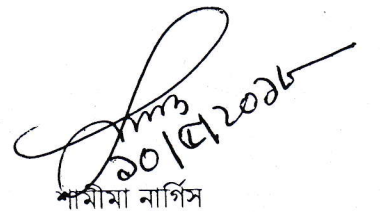 ১০/৫/২০১৮
শামীমা নার্গিস